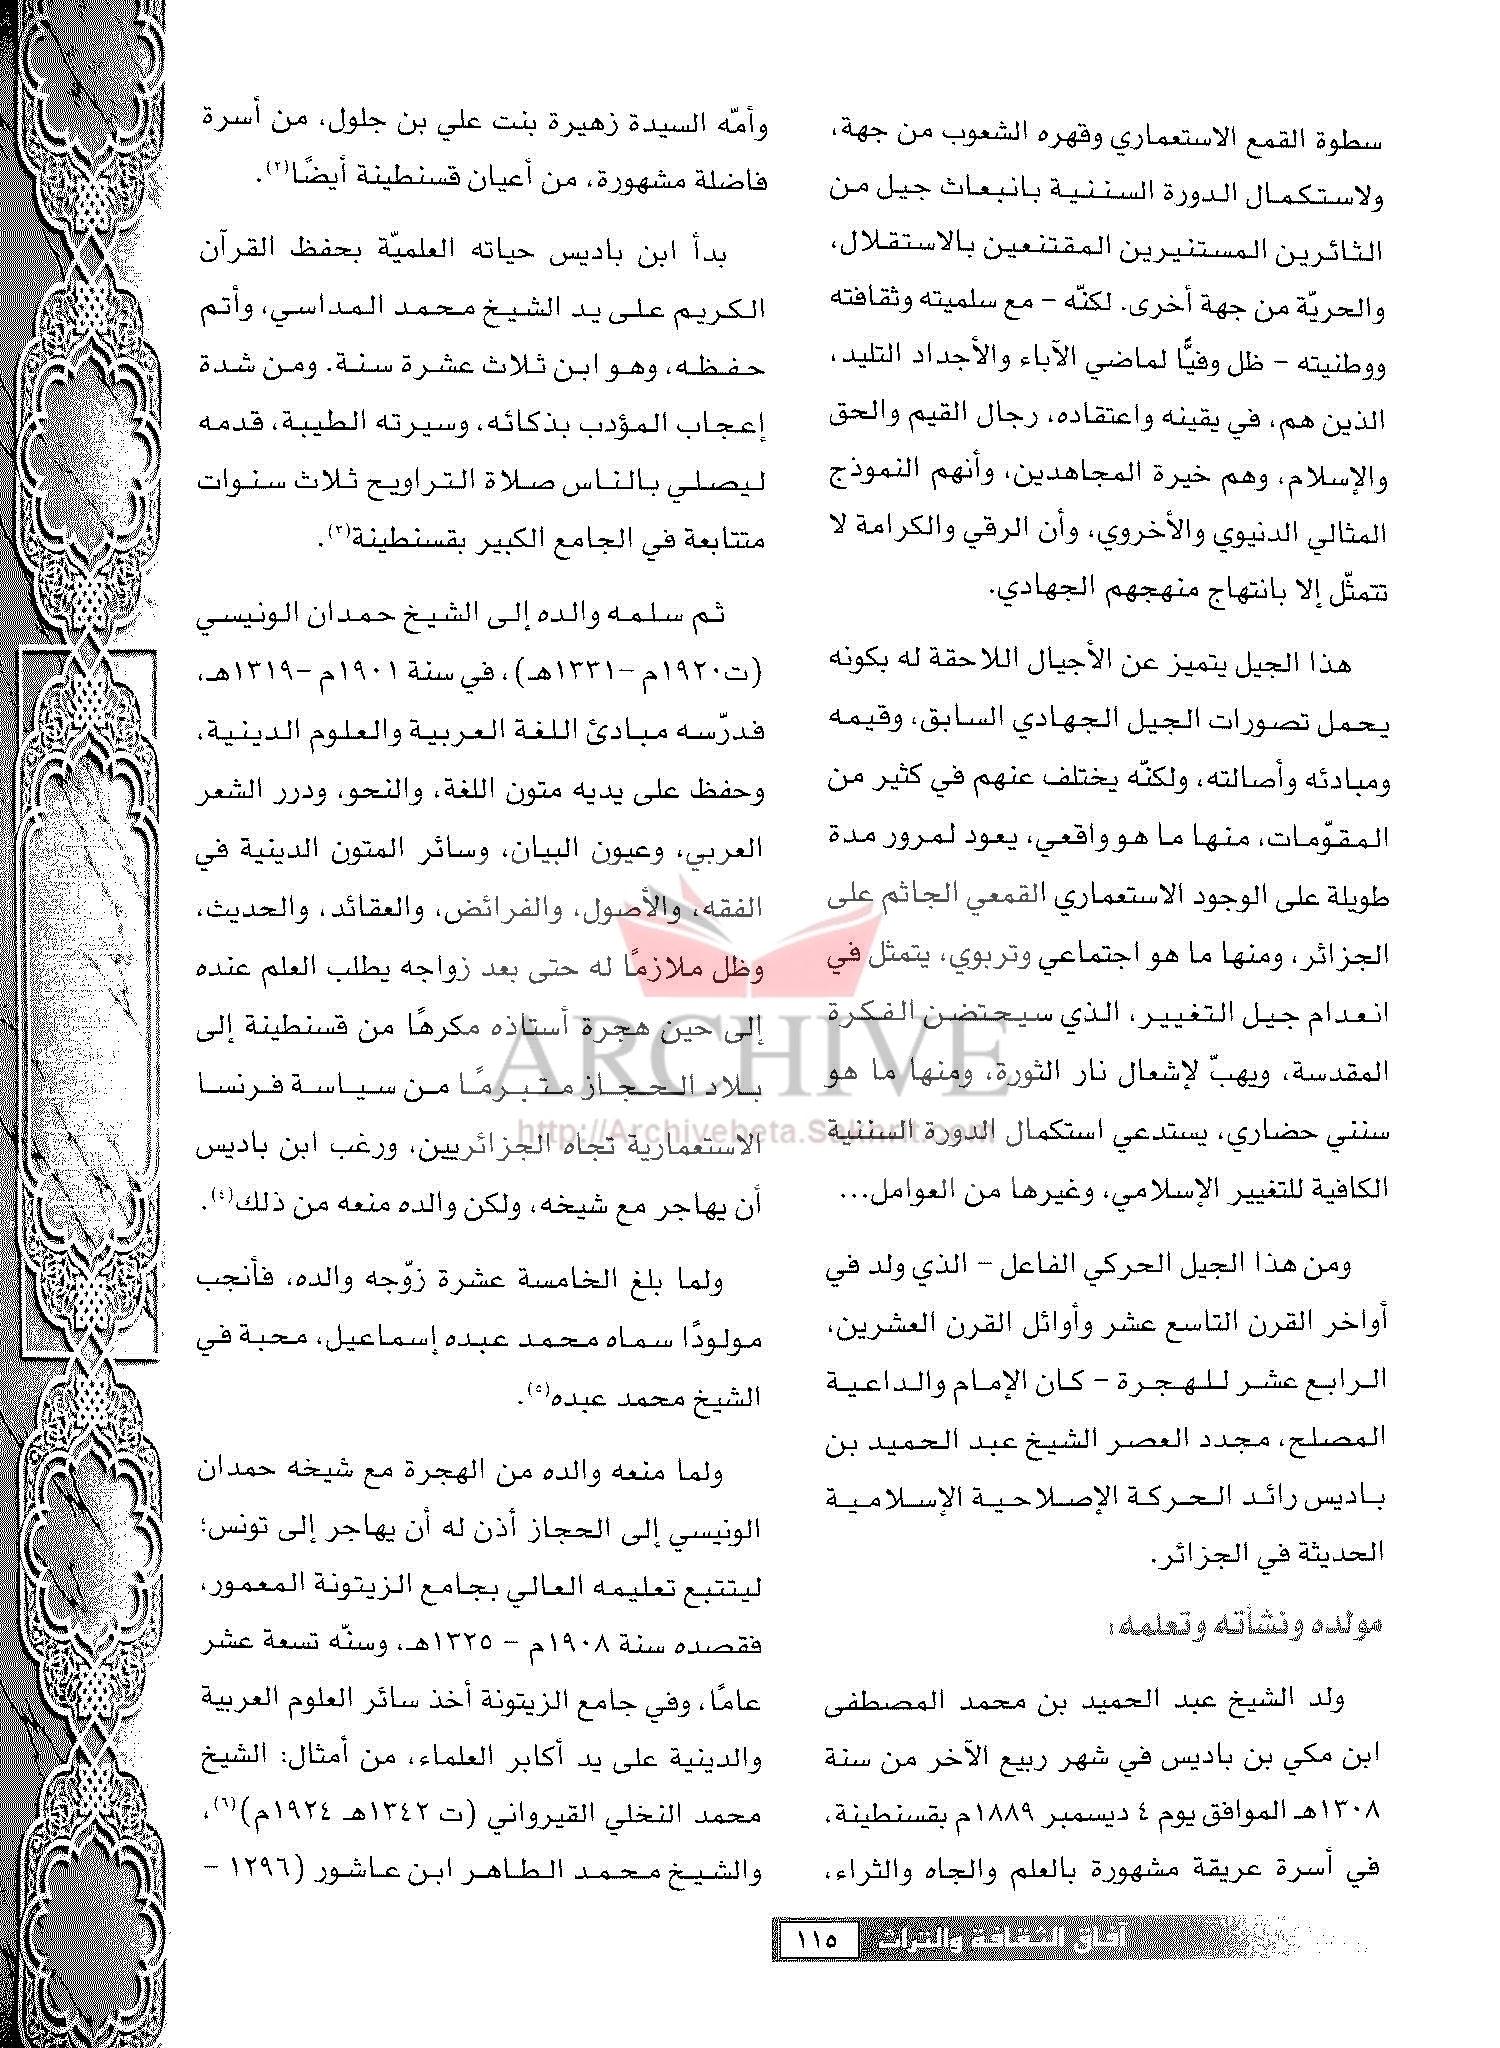 سطوة القمع الاستعماري وقهره الشعوب من جهة،
ولاستكمال الدورة السننية بانبعاث جيل من
الثائرين المستنيرين المقتنعين بالاستقلال،
والحريّة من جهة أخرى. لكنّه – مع سلميته وثقافته
ووطنيته – ظل وفيًّا لماضي الآباء والأجداد التليد،
الذين هم، في يقينه واعتقاده، رجال القيم والحق
والإسلام، وهم خيرة المجاهدين، وأنهم النموذج
المثالي الدنيوي والأخروي، وأن الرقي والكرامة لا
تتمثّل إلا بانتهاج منهجهم الجهادي.
هذا الجيل يتميز عن الأجيال اللاحقة له بكونه
يحمل تصورات الجيل الجهادي السابق، وقيمه
ومبادئه وأصالته، ولكنّه يختلف عنهم في كثير من
المقوّمات، منها ما هو واقعي، يعود لمرور مدة
طويلة على الوجود الاستعماري القمعي الجاثم على
الجزائر، ومنها ما هو اجتماعي وتربوي، يتمثل في
انعدام جيل التغيير، الذي سيحتضن الفكرة
المقدسة، ويهبّ لإشعال نار الثورة، ومنها ما هو
سنني حضاري، يستدعي استكمال الدورة السننية
الكافية للتغيير الإسلامي، وغيرها من العوامل...
ومن هذا الجيل الحركي الفاعل – الذي ولد في
أواخر القرن التاسع عشر وأوائل القرن العشرين،
الرابع عشر للهجرة – كان الإمام والداعية
المصلح، مجدد العصر الشيخ عبد الحميد بن
باديس رائد الحركة الإصلاحية الإسلامية
الحديثة في الجزائر.
مولده ونشأته وتعلمه:
ولد الشيخ عبد الحميد بن محمد المصطفى
ابن مكي بن باديس في شهر ربيع الآخر من سنة
١٣٠٨هـ الموافق يوم ٤ ديسمبر ١٨٨٩م بقسنطينة،
في أسرة عريقة مشهورة بالعلم والجاه والثراء،
وأمّه السيدة زهيرة بنت علي بن جلول، من أسرة
فاضلة مشهورة، من أعيان قسنطينة أيضًا(٢).
بدأ ابن باديس حياته العلميّة بحفظ القرآن
الكريم على يد الشيخ محمد المداسي، وأتم
حفظه، وهو ابن ثلاث عشرة سنة. ومن شدة
إعجاب المؤدب بذكائه، وسيرته الطيبة، قدمه
ليصلي بالناس صلاة التراويح ثلاث سنوات
متتابعة في الجامع الكبير بقسنطينة(٣).
ثم سلمه والده إلى الشيخ حمدان الونيسي
(ت١٩٢٠م –١٣٣١هـ)، في سنة ١٩٠١م –١٣١٩هـ،
فدرّسه مبادئ اللغة العربية والعلوم الدينية،
وحفظ على يديه متون اللغة، والنحو، ودرر الشعر
العربي، وعيون البيان، وسائر المتون الدينية في
الفقه، والأصول، والفرائض، والعقائد، والحديث،
وظل ملازمًا له حتى بعد زواجه يطلب العلم عنده
إلى حين هجرة أستاذه مكرهًا من قسنطينة إلى
بلاد الحجاز متبرمًا من سياسة فرنسا
الاستعمارية تجاه الجزائريين، ورغب ابن باديس
أن يهاجر مع شيخه، ولكن والده منعه من ذلك(٤).
ولما بلغ الخامسة عشرة زوّجه والده، فأنجب
مولودًا سماه محمد عبده إسماعيل، محبة في
الشيخ محمد عبده(٥).
ولما منعه والده من الهجرة مع شيخه حمدان
الونيسي إلى الحجاز أذن له أن يهاجر إلى تونس؛
ليتتبع تعليمه العالي بجامع الزيتونة المعمور،
فقصده سنة ١٩٠٨م – ١٣٢٥هـ، وسنّه تسعة عشر
عامًا، وفي جامع الزيتونة أخذ سائر العلوم العربية
والدينية على يد أكابر العلماء، من أمثال: الشيخ
محمد النخلي القيرواني (ت ١٣٤٢هـ ١٩٢٤م)(٦)،
والشيخ محمد الطاهر ابن عاشور (١٢٩٦ –
ARCHIVE
آفاق الثقافة والتراث ١١٥